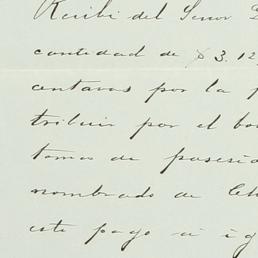 Recibí del Señor
cantidad de $ 3.12
centavos por la
tribuir por el
tomas de posesió
nombrado de Ch
este pago a ig